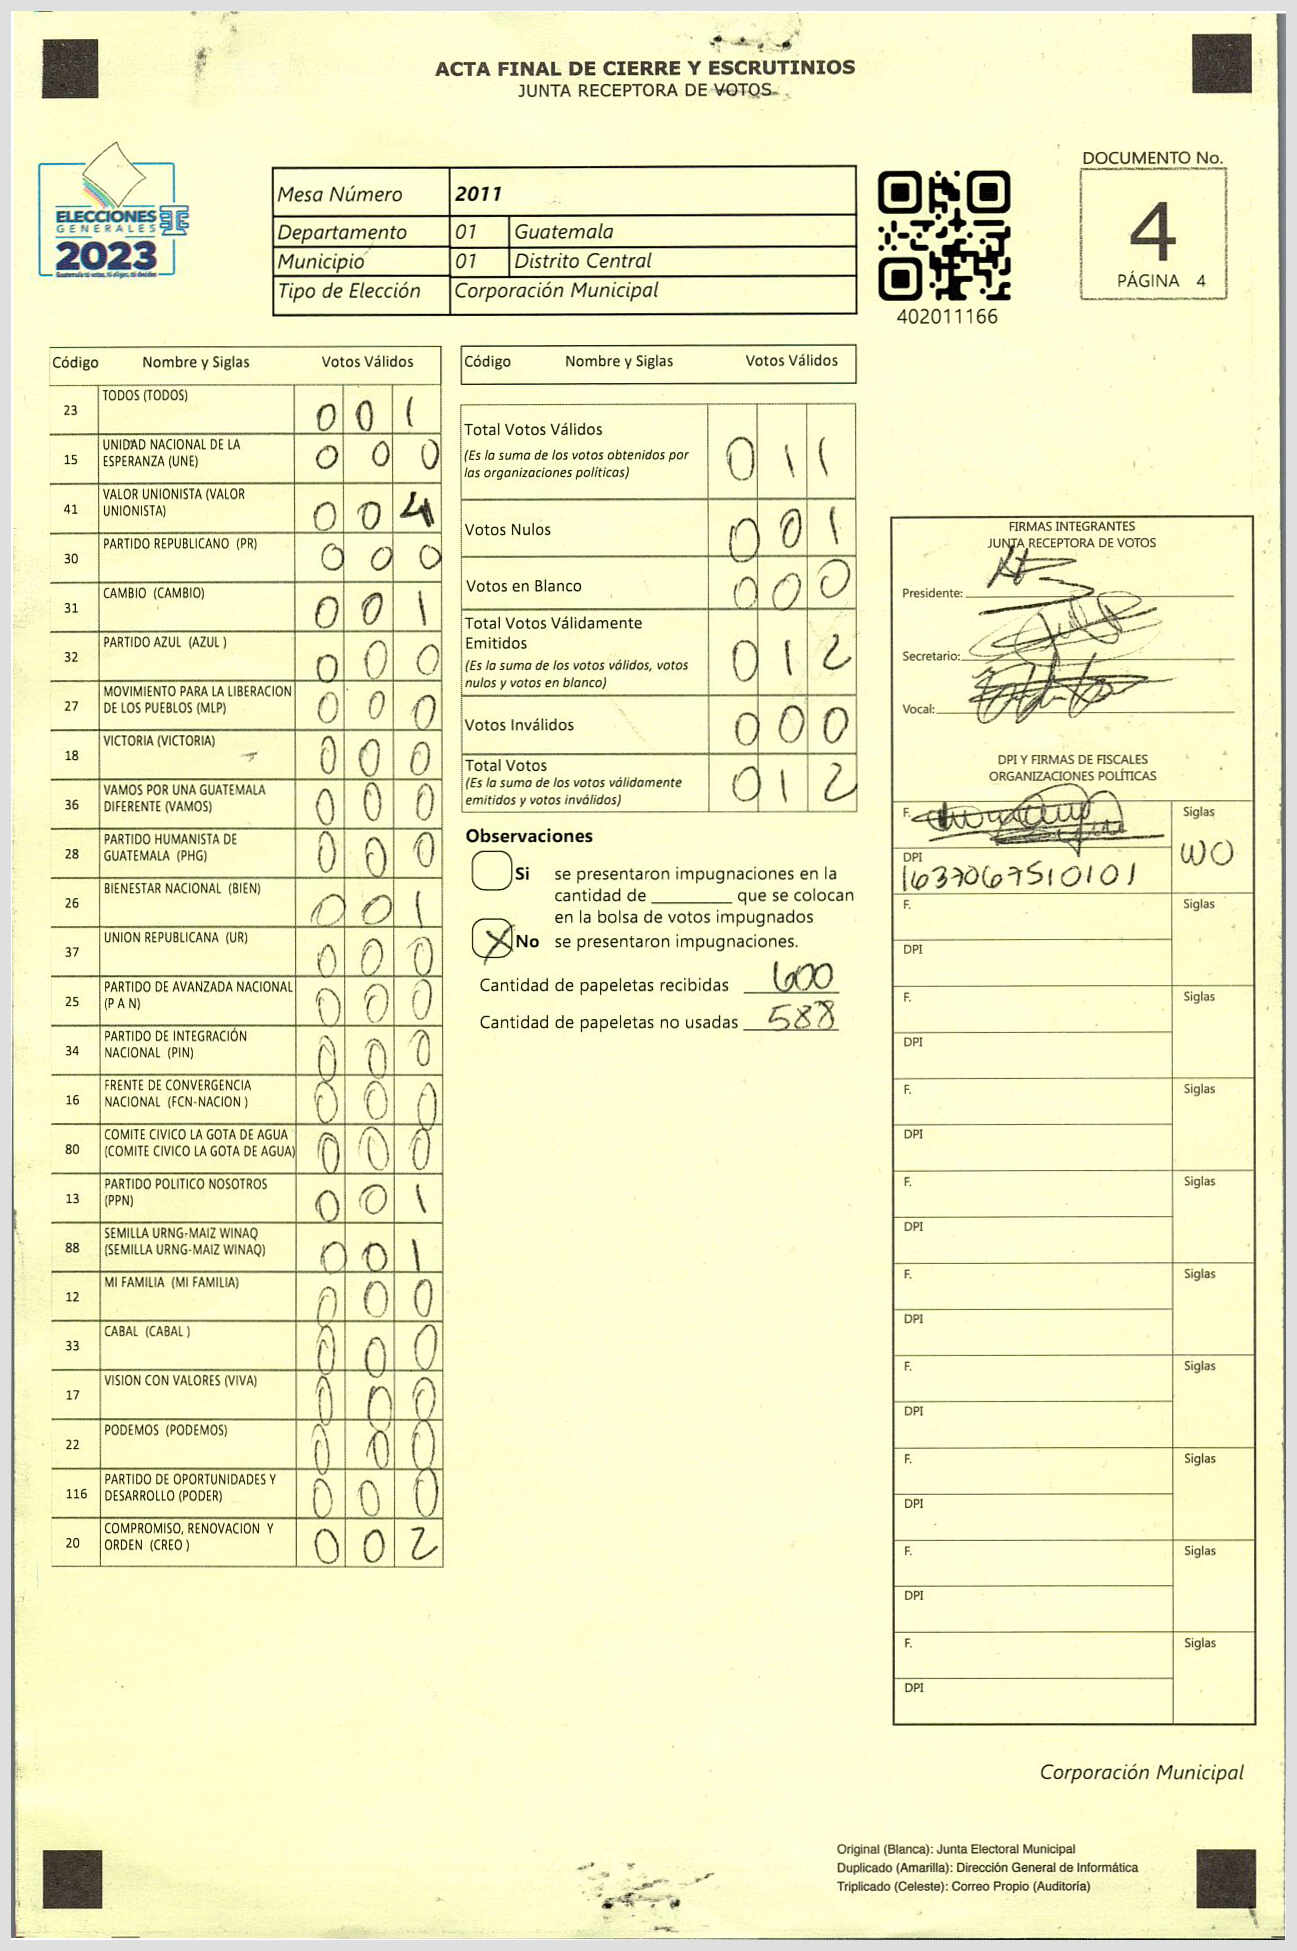 ACTA FINAL DE CIERRE Y ESCRUTINIOS
JUNTA RECEPTORA DE VOTOS
ELECCIONES
GENERALES
2023
Mesa Número 2011
Departamento 01 Guatemala
Municipio 01 Distrito Central
Tipo de Elección Corporación Municipal
402011166
DOCUMENTO No.
4
PÁGINA 4
Código Nombre y Siglas Votos Válidos
23 TODOS (TODOS) 0 0 1
15 UNIDAD NACIONAL DE LA
ESPERANZA (UNE) 0 0 0
41 VALOR UNIONISTA (VALOR
UNIONISTA) 0 0 4
30 PARTIDO REPUBLICANO (PR) 0 0 0
31 CAMBIO (CAMBIO) 0 0 1
32 PARTIDO AZUL (AZUL ) 0 0 0
27 MOVIMIENTO PARA LA LIBERACION
DE LOS PUEBLOS (MLP) 0 0 0
18 VICTORIA (VICTORIA) 0 0 0
36 VAMOS POR UNA GUATEMALA
DIFERENTE (VAMOS) 0 0 0
28 PARTIDO HUMANISTA DE
GUATEMALA (PHG) 0 0 0
26 BIENESTAR NACIONAL (BIEN) 0 0 1
37 UNION REPUBLICANA (UR) 0 0 0
25 PARTIDO DE AVANZADA NACIONAL
(P A N) 0 0 0
34 PARTIDO DE INTEGRACIÓN
NACIONAL (PIN) 0 0 0
16 FRENTE DE CONVERGENCIA
NACIONAL (FCN-NACION ) 0 0 0
80 COMITE CIVICO LA GOTA DE AGUA
(COMITE CIVICO LA GOTA DE AGUA) 0 0 0
13 PARTIDO POLITICO NOSOTROS
(PPN) 0 0 1
88 SEMILLA URNG-MAIZ WINAQ
(SEMILLA URNG-MAIZ WINAQ) 0 0 1
12 MI FAMILIA (MI FAMILIA) 0 0 0
33 CABAL (CABAL ) 0 0 0
17 VISION CON VALORES (VIVA) 0 0 0
22 PODEMOS (PODEMOS) 0 0 0
116 PARTIDO DE OPORTUNIDADES Y
DESARROLLO (PODER) 0 0 0
20 COMPROMISO, RENOVACION Y
ORDEN (CREO ) 0 0 2
Código Nombre y Siglas Votos Válidos
Total Votos Válidos 0 1 1
(Es la suma de los votos obtenidos por
las organizaciones políticas)
Votos Nulos 0 0 1
Votos en Blanco 0 0 0
Total Votos Válidamente
Emitidos 0 1 2
(Es la suma de los votos válidos, votos
nulos y votos en blanco)
Votos Inválidos 0 0 0
Total Votos 0 1 2
(Es la suma de los votos válidamente
emitidos y votos inválidos)
Observaciones
Si se presentaron impugnaciones en la
cantidad de ________ que se colocan
en la bolsa de votos impugnados
X No se presentaron impugnaciones.
Cantidad de papeletas recibidas 600
Cantidad de papeletas no usadas 588
FIRMAS INTEGRANTES
JUNTA RECEPTORA DE VOTOS
Presidente:
Secretario:
Vocal:
DPI Y FIRMAS DE FISCALES
ORGANIZACIONES POLÍTICAS
F. Siglas
WO
DPI
1637067510101
F. Siglas
DPI
F. Siglas
DPI
F. Siglas
DPI
F. Siglas
DPI
F. Siglas
DPI
F. Siglas
DPI
F. Siglas
DPI
F. Siglas
DPI
F. Siglas
DPI
Corporación Municipal
Original (Blanca): Junta Electoral Municipal
Duplicado (Amarilla): Dirección General de Informática
Triplicado (Celeste): Correo Propio (Auditoría)